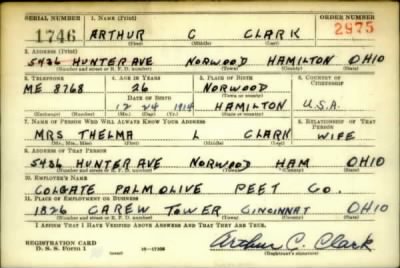 SERIAL NUMBER 1. NAME (Print) ORDER NUMBER
1746 ARTHUR C CLARK 2975
(First) (Middle) (Last)
2. ADDRESS (Print)
5436 HUNTER AVE NORWOOD HAMILTON OHIO
(Number and street or R. F. D. number) (Town) (County) (State)
3. TELEPHONE 4. AGE IN YEARS 5. PLACE OF BIRTH 6. COUNTRY OF CITIZENSHIP
ME 8768 26 NORWOOD
DATE OF BIRTH (Town or county)
12 24 1914 HAMILTON U.S.A.
(Exchange) (Number) (Mo.) (Day) (Yr.) (State or country)
7. NAME OF PERSON WHO WILL ALWAYS KNOW YOUR ADDRESS 8. RELATIONSHIP OF THAT PERSON
MRS THELMA L CLARK WIFE
(Mr., Mrs., Miss) (First) (Middle) (Last)
9. ADDRESS OF THAT PERSON
5436 HUNTER AVE NORWOOD HAM OHIO
(Number and street or R. F. D. number) (Town) (County) (State)
10. EMPLOYER'S NAME
COLGATE PALMOLIVE PEET CO.
11. PLACE OF EMPLOYMENT OR BUSINESS
1826 CAREW TOWER CINCINNAT OHIO
(Number and street or R. F. D. number) (Town) (County) (State)
I AFFIRM THAT I HAVE VERIFIED ABOVE ANSWERS AND THAT THEY ARE TRUE.
REGISTRATION CARD
D. S. S. Form 1 16—17105 Arthur C. Clark
(Registrant's signature)